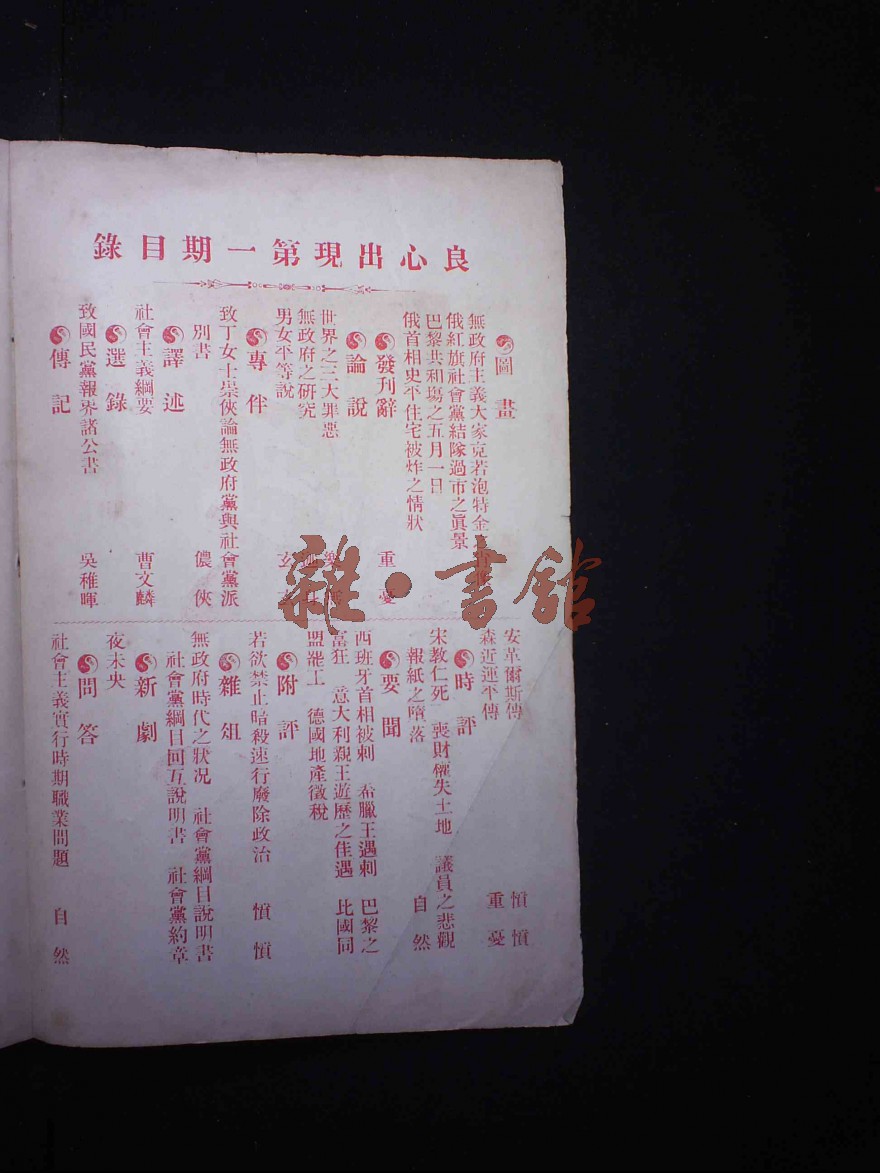 良心出現第一期目錄
圖畫
無政府主義大家克若泡特金
俄紅旗社會黨結隊過市之眞景
巴黎共和塲之五月一日
俄首相史不住宅被炸之情狀
發刊辭 重憂
論說
世界之三大罪惡
無政府之研究
男女平等說
專件
致丁女士崇俠論無政府黨與社會黨派
別書 儂俠
譯述
社會主義綱要 曹文麟
選錄
致國民黨報界諸公書 吳稚暉
傳記
安革爾斯傳 憤憤
森近運平傳 重憂
時評
宋教仁死 喪財權失土地 議員之悲觀
報紙之墮落 自然
要聞
西班牙首相被刺 希臘王遇刺 巴黎之
富狂 意大利親王遊歷之佳遇 比國同
盟罷工 德國地產徵稅
附評
若欲禁止暗殺速行廢除政治 憤憤
雜俎
無政府時代之狀况 社會黨綱目說明書
社會黨綱目回互說明書 社會黨約章
新劇
夜未央
問答
社會主義實行時期職業問題 自然
雜·書館